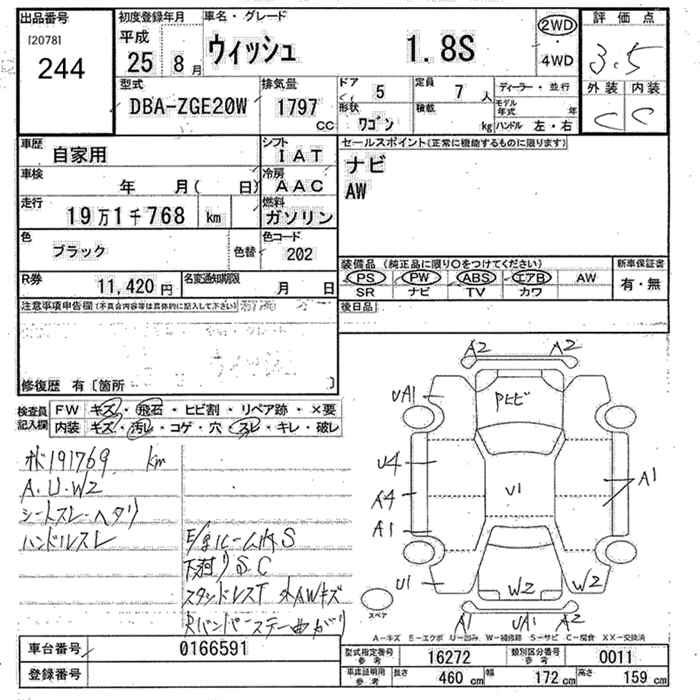 出品番号
[2078]
244
初度登録年月
平成
25 8月
車名・グレード
ウィッシュ 1.8S
2WD
・
4WD
評価点
3.5
外装 内装
C C
型式
DBA-ZGE20W
排気量
1797
CC
ドア 5
形状 ワゴン
定員 7 人
積載 kg
ディーラー・並行
モデル年式 年
ハンドル 左・右
車歴
自家用
シフト
IAT
車検
年 月( 日)
冷房
AAC
走行
19万1千768 km
燃料
ガソリン
色
ブラック
色替
色コード
202
R券
11,420円
名変通知期限
月 日
セールスポイント(正常に機能するものに限ります)
ナビ
AW
装備品 (純正品に限り○をつけてください)
PS PW ABS エアB AW
SR ナビ TV カワ
新車保証書
有・無
後日品
注意事項申告欄(不具合内容等は具体的に記入して下さい)
修復歴 有〔箇所 〕
検査員記入欄
FW キズ・飛石・ヒビ割・リペア跡・×要
内装 キズ・汚レ・コゲ・穴・スレ・キレ・破レ
191769 km
A.U.W2
シートスレ・ヘタリ
ハンドルスレ
S
下廻りS.C
外AWキズ
A2 A2
UA1
U4
A4
A1
U1
U1
A1
W2 W2
A1 UA1 A2
スペア
A-キズ E-エクボ U-凹み W-補修跡 S-サビ C-腐食 XX-交換済
車台番号 0166591
登録番号
型式指定番号 参考 16272
類別区分番号 参考 0011
車庫証明用 参考 長さ 460 cm 幅 172 cm 高さ 159 cm